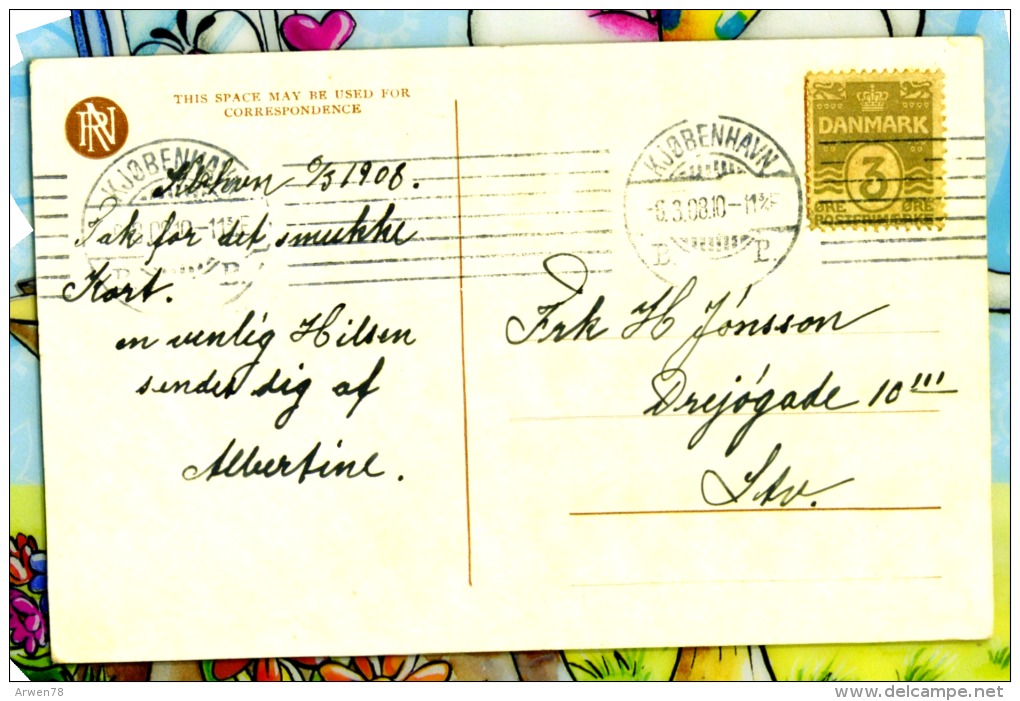 THIS SPACE MAY BE USED FOR
CORRESPONDENCE
RN
KJØBENHAVN
6.3.08.10-11¾F
B. P.
KJØBENHAVN
-6.3.08.10-11¾F
B. P.
DANMARK
3
ØRE ØRE
POSTFRIMÆRKE
6/3 1908.
Tak for det smukke
Kort.
en venlig Hilsen
sendes dig af
Albertine.
Frk H Jónsson
Drejógade 10'''
Stv.
Arwen78
www.delcampe.net